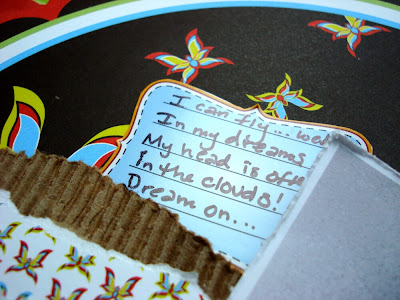 I can fly... well
In my dreams
My head is often
in the clouds!
Dream on...